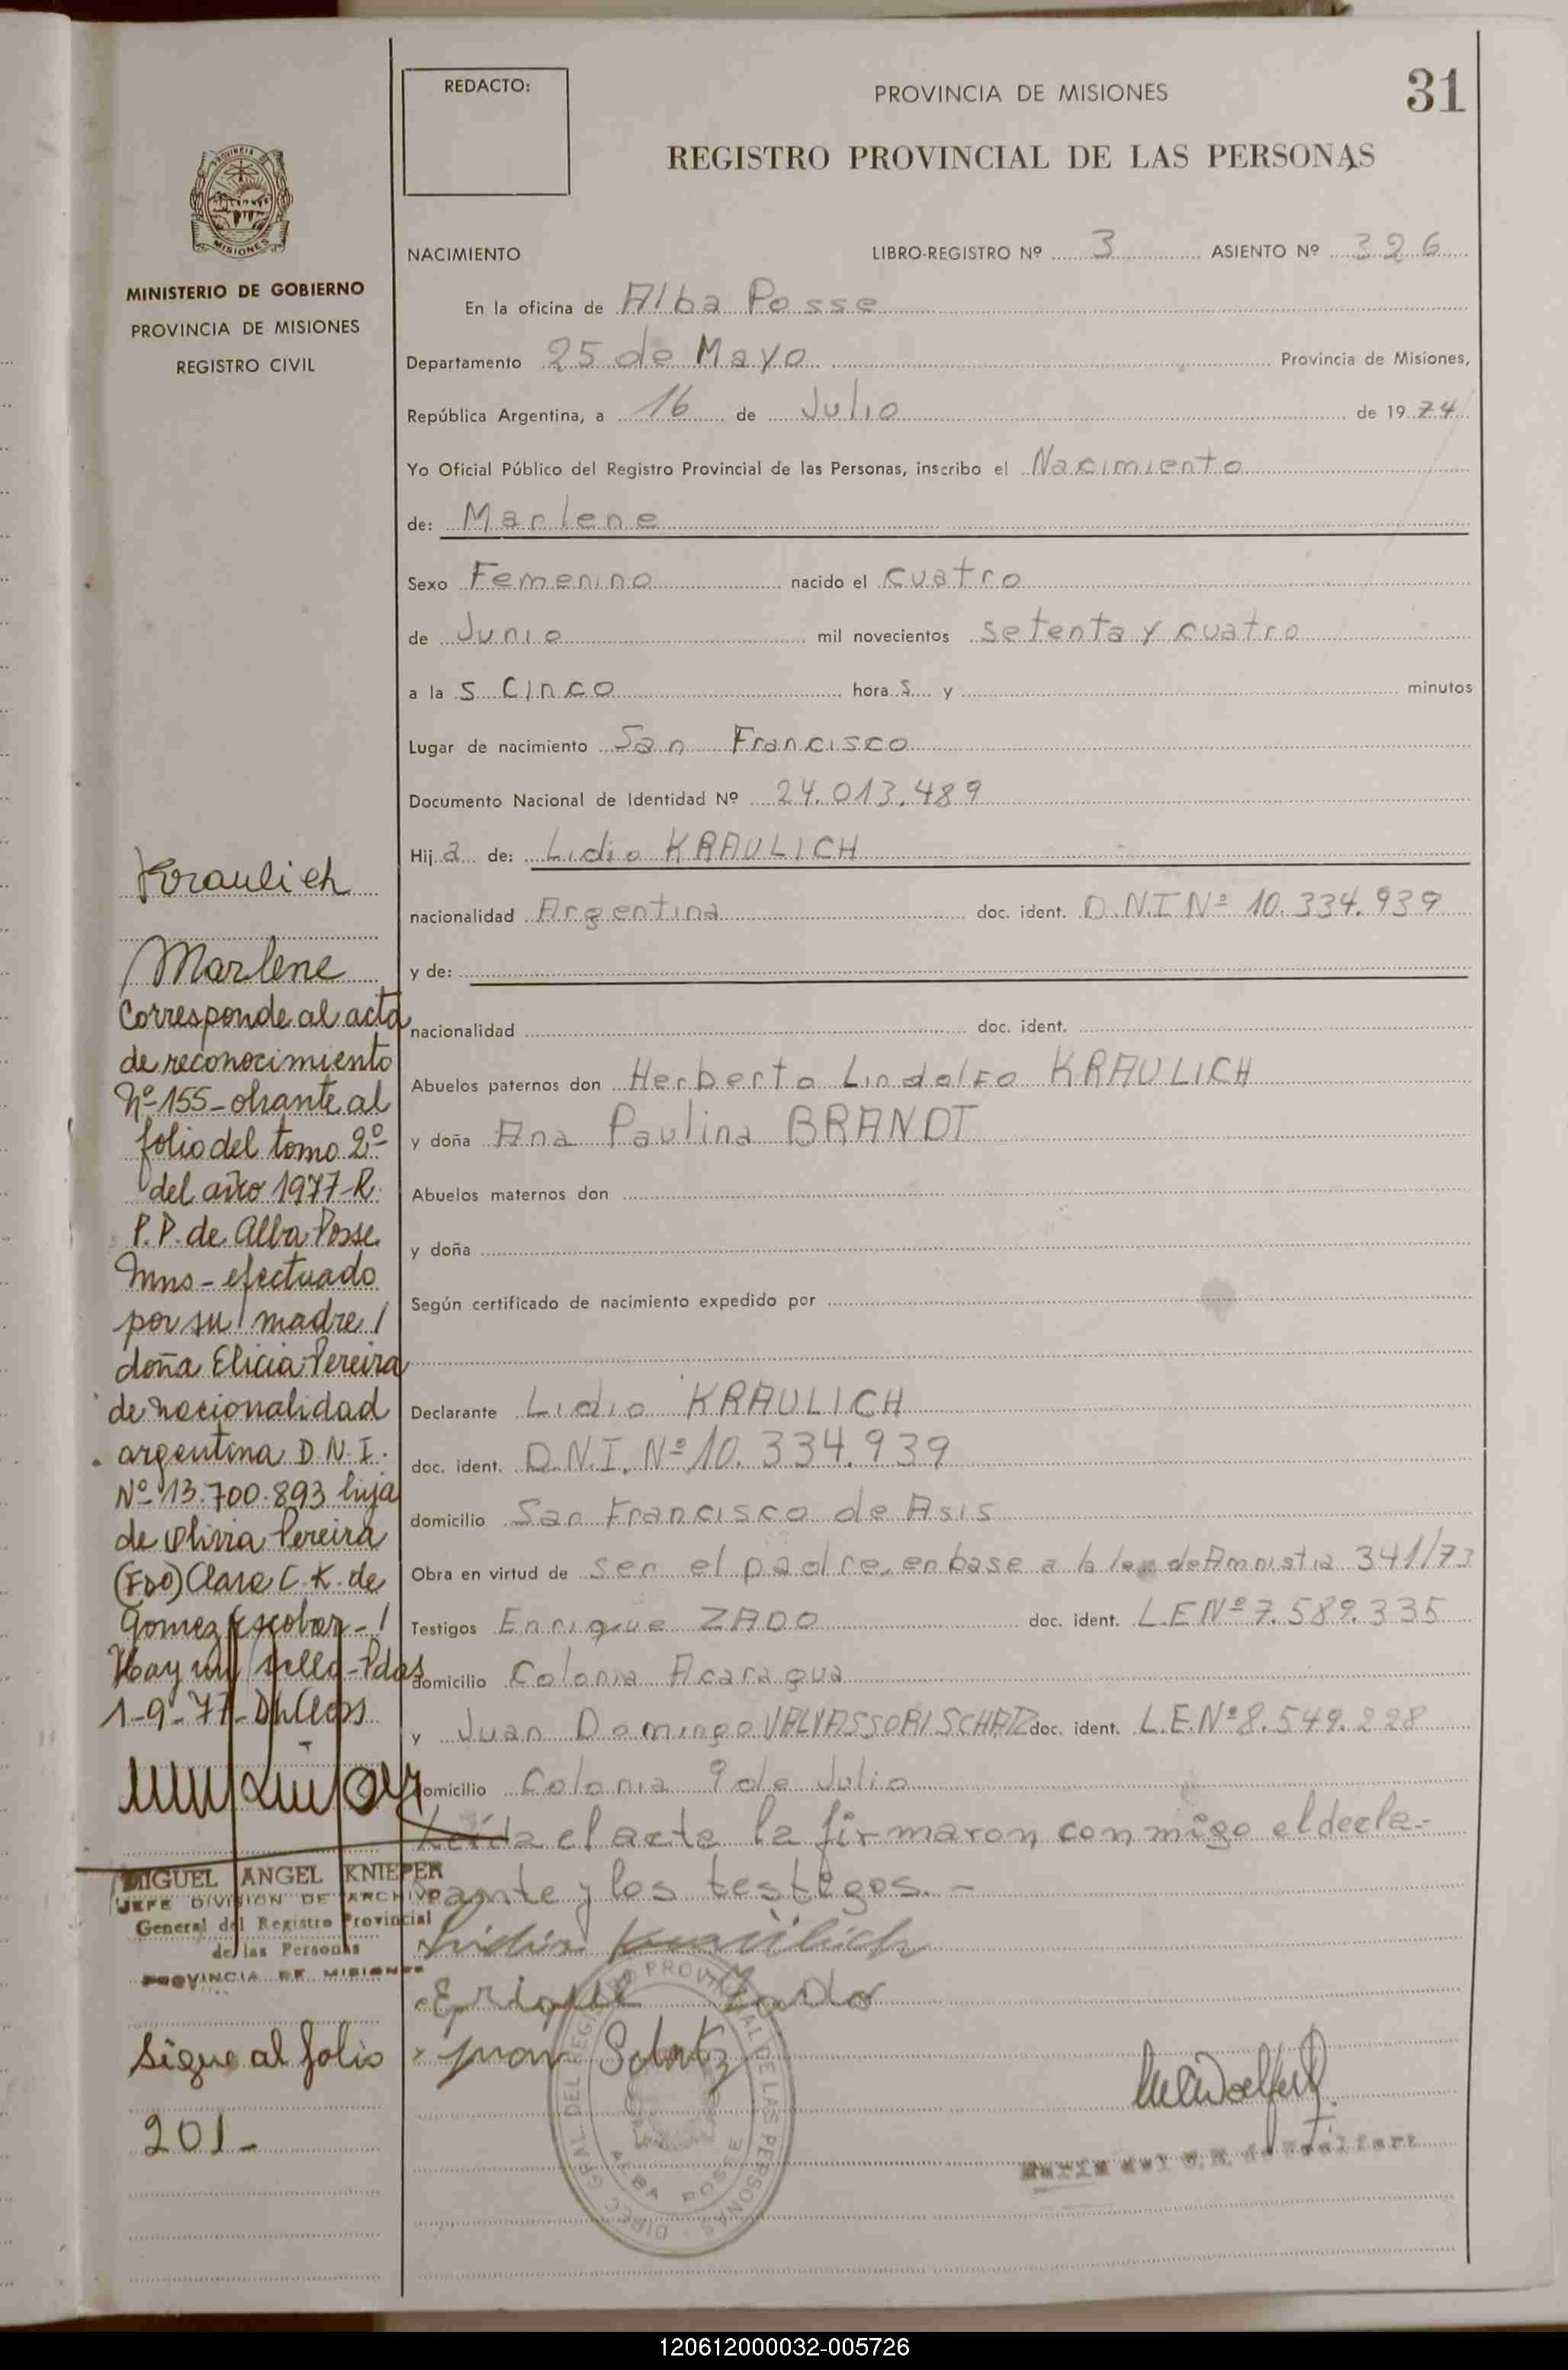 REDACTO:
PROVINCIA DE MISIONES
31
REGISTRO PROVINCIAL DE LAS PERSONAS
PROVINCIA DE
MISIONES
MINISTERIO DE GOBIERNO
PROVINCIA DE MISIONES
REGISTRO CIVIL
NACIMIENTO LIBRO-REGISTRO Nº 3 ASIENTO Nº 326
En la oficina de Alba Posse
Departamento 25 de Mayo Provincia de Misiones,
República Argentina, a 16 de Julio de 1974
Yo Oficial Público del Registro Provincial de las Personas, inscribo el Nacimiento
de: Marlene
Sexo Femenino nacido el cuatro
de Junio mil novecientos setenta y cuatro
a la s cinco hora s y minutos
Lugar de nacimiento San Francisco
Documento Nacional de Identidad Nº 24.013.489
Hij a de: Lidio KRAULICH
nacionalidad Argentina doc. ident. D.N.I Nº 10.334.939
y de:
nacionalidad doc. ident.
Abuelos paternos don Herberto Lindolfo KRAULICH
y doña Ana Paulina BRANDT
Abuelos maternos don
y doña
Según certificado de nacimiento expedido por
Declarante Lidio KRAULICH
doc. ident. D.N.I. Nº 10.334.939
domicilio San Francisco de Asis
Obra en virtud de ser el padre, en base a la ley de Amnistia 341/73
Testigos Enrique ZADO doc. ident. L.E Nº 7.589.335
domicilio Colonia Acaragua
y Juan Domingo VALVASSORI SCHATZ doc. ident. L.E. Nº 8.549.228
domicilio Colonia 9 de Julio
Leída el acta la firmaron conmigo el decla-
rante y los testigos.-
Lidio Kraulich
Erique Zado
Juan Schatz
DIREC. GRAL DEL REGISTRO PROVINCIAL DE LAS PERSONAS
ALBA POSSE
Kraulich
Marlene
Corresponde al acta
de reconocimiento
Nº 155- obrante al
folio del tomo 2º
del año 1977-R.
P.P. de Alba Posse
Mns- efectuado
por su madre/
doña Elicia Pereira
de nacionalidad
argentina D.N.I.
Nº 13.700.893 hija
de Olivia Pereira
(FDO) Clara C.K. de
Gomez Escobar-/
Hay un sello-Pdas
1-9-77-
MIGUEL ANGEL KNIEPER
JEFE DIVISION DE ARCHIVO
General del Registro Provincial
de las Personas
PROVINCIA DE MISIONES
Sigue al folio
201-
120612000032-005726